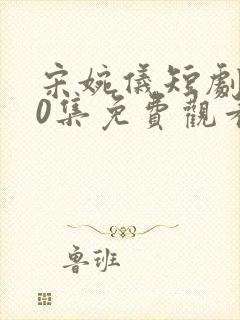 宋婉儀短劇
0集免費觀看
魯班